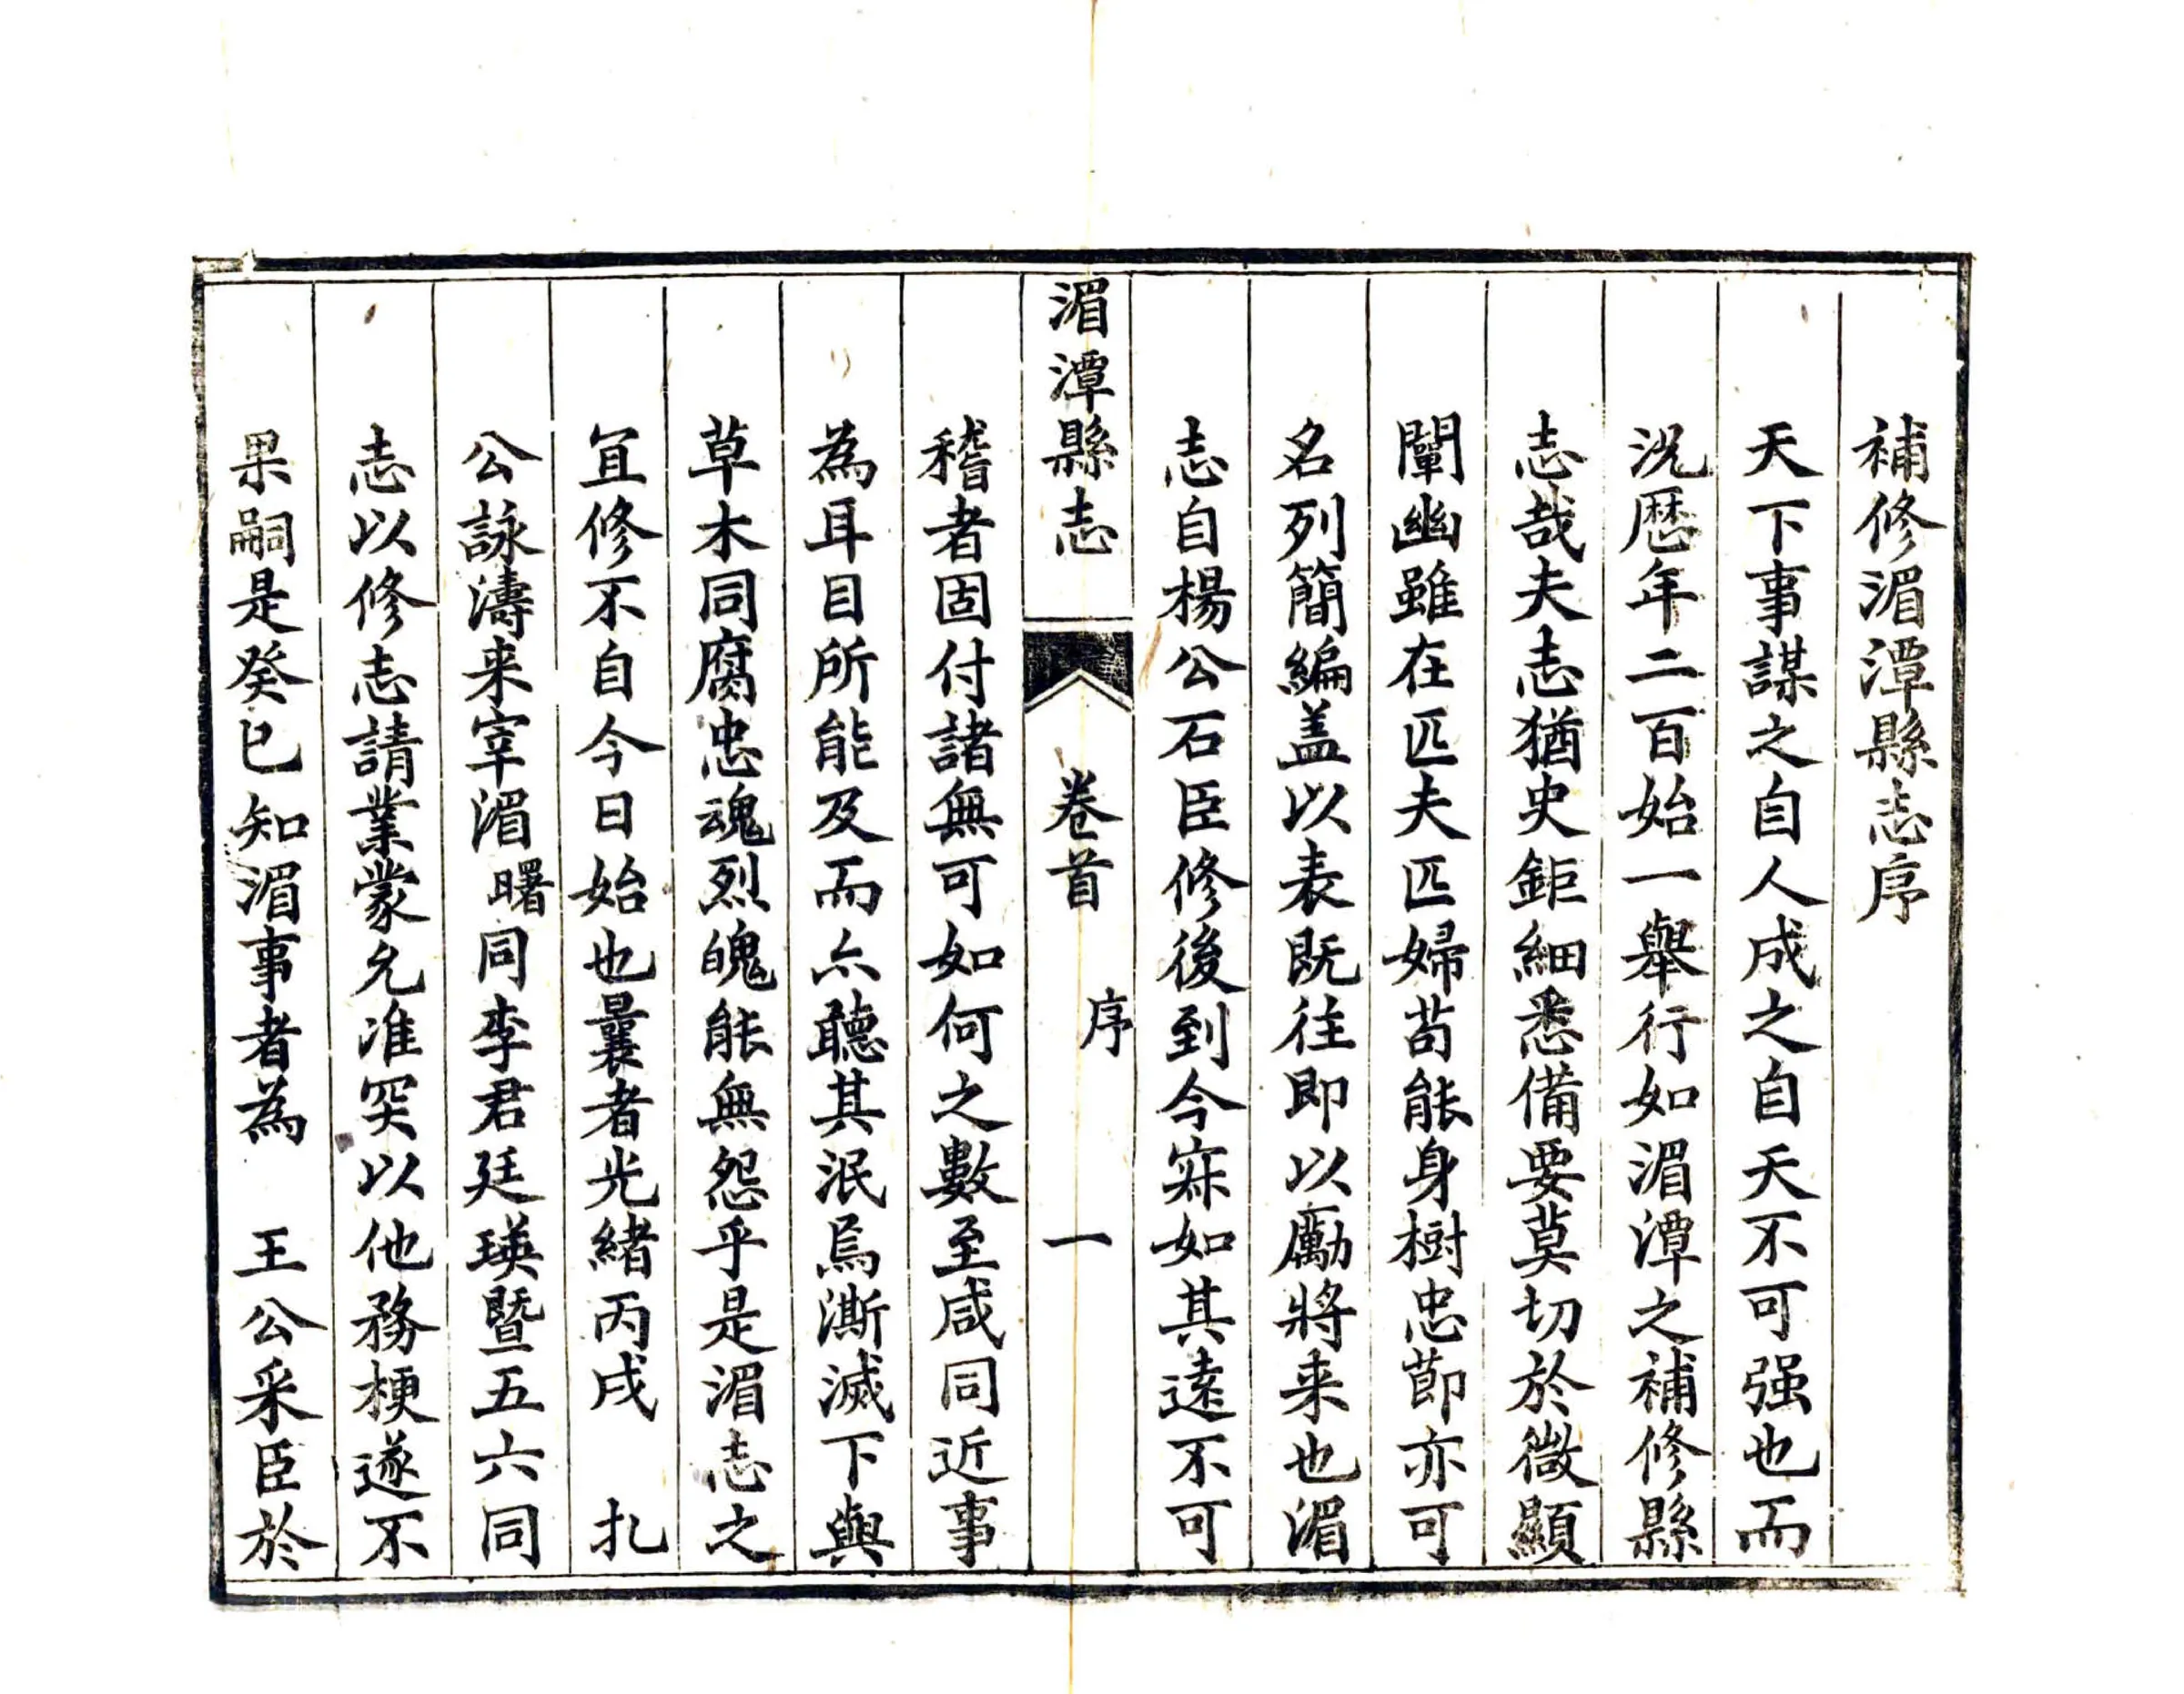 補修湄潭縣志序
天下事謀之自人成之自天不可强也而
况歴年二百始一舉行如湄潭之補修縣
志哉夫志猶史鉅細悉備要莫切於微顯
闡幽雖在匹夫匹婦苟能身樹忠節亦可
名列簡編盖以表既往即以勵將来也湄
志自楊公石臣修後到今寐如其遠不可
湄潭縣志 卷首 序 一
稽者固付諸無可如何之數至咸同近事
為耳目所能及而亦聽其泯焉澌滅下與
草木同腐忠魂烈魄能無怨乎是湄志之
冝修不自今日始也曩者光緒丙戌 扎
公詠濤来宰湄曙同李君廷瑛暨五六同
志以修志請業蒙允准突以他務梗遂不
果嗣是癸巳知湄事者為 王公采臣於